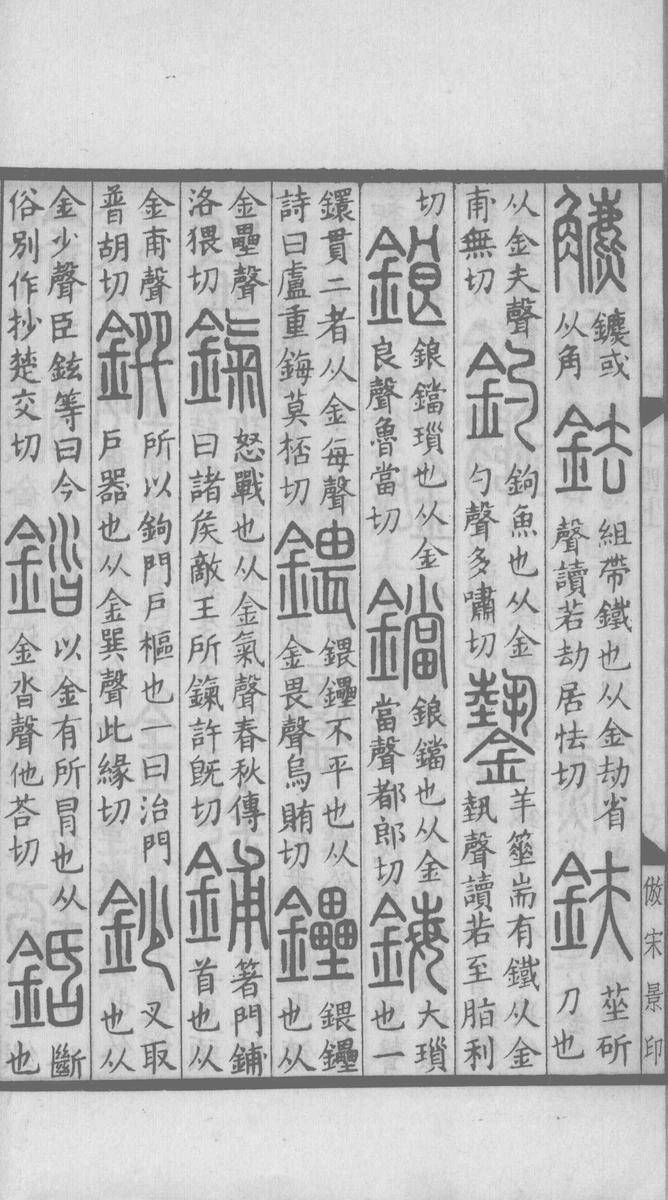 䚦鑣或从角鉣組帶鐵也从金劫省聲讀若劫居怯切鈇莝斫刀也
从金夫聲甫無切釣鉤魚也从金勺聲多嘯切䥍羊箠耑有鐵从金執聲讀若至脂利
切鋃鋃鐺瑣也从金良聲魯當切鐺鋃鐺也从金當聲都郎切鋂大瑣也一
鐶貫二者从金每聲詩曰盧重鋂莫桮切鍡鍡鑸不平也从金畏聲烏賄切鑸鍡鑸也从
金壘聲洛猥切鎎怒戰也从金氣聲春秋傳曰諸侯敵王所鎎許旣切鋪箸門鋪首也从
金甫聲普胡切鐉所以鉤門戶樞也一曰治門戶器也从金巽聲此緣切鈔叉取也从
金少聲臣鉉等曰今俗別作抄楚交切錔以金有所冒也从金沓聲他荅切銽斷也
倣宋景印